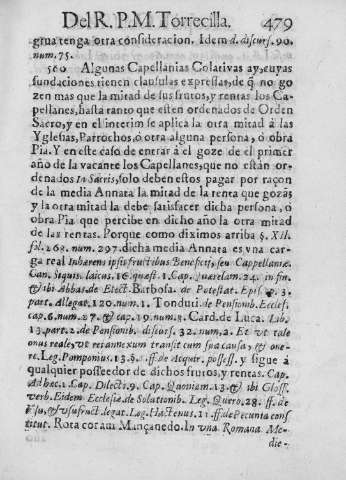 Del R. P. M. Torrecilla. 479
grua tenga otra consideracion. Idem d. discurs. 90.
num. 75.
560 Algunas Capellanias Colativas ay, cuyas
fundaciones tienen clausulas expressas, de q̃ no go
zen mas que la mitad de sus frutos, y rentas los Ca-
pellanes, hasta tanto que estèn ordenados de Orden
Sacro, y en el interim se aplica la otra mitad à las
Yglesias, Parrochos, ò otra alguna persona, ò obra
Pia. Y en este caso de entrar à el goze de el primer
año de la vacante los Capellanes, que no estàn or-
denados In Sacris, solo deben estos pagar por raçon
de la media Annata la mitad de la renta que gozañ
y la otra mitad la debe satisfacer dicha persona, ò
obra Pia que percibe en dicho año la otra mitad
de las rentas. Porque como diximos arriba §. XII.
fol. 268. num. 297. dicha media Annata es vna car-
ga real Inharens ipsis fructibus Beneficij, seu Capellaniæ
Can. Siquis. laicus. 16. quæst. 1. Cap. Querelam. 24. in fin.
& ibi Abbas. de Elect. Barbosa. de Potestat. Epis. p. 3.
part. Allegat. 120. num. 1. Tonduti. de Pensionib. Eccles.
cap. 6. num. 27. & cap. 19. num. 8. Card. de Luca. Lib.
13. part. 2. de Pensionib. discurs. 32. num. 2. Et vt tale
onus reale, vt rei annexum transit cum sua causa, & one-
re. Leg. Pomponius. 13. §. 1. ff. de Acquir. possess. y sigue à
qualquier posseedor de dichos frutos, y rentas. Cap.
Ad hæc. 1. Cap. Dilecti. 9. Cap. Quoniam. 13. & ibi Gloss.
verb. Eidem Ecclesiæ de Solutionib. Leg. Quero. 28. ff. de
Vsu, & vsufruct. legat. Leg. Hactenus. 21. ff. de Pecunia const
titut. Rota coram Mançanedo. In vna Romana Me-
die-